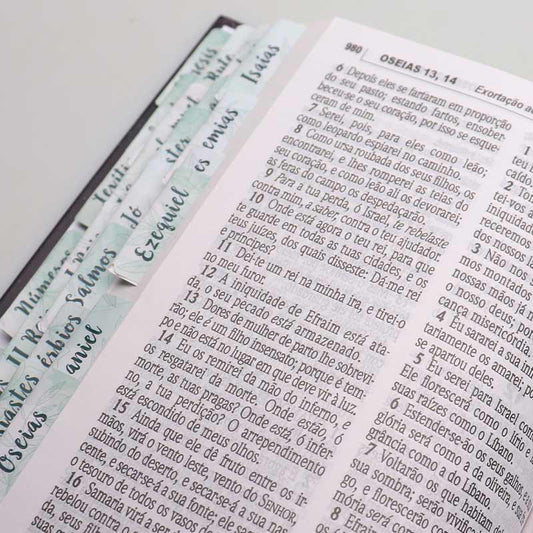 980
OSEIAS 13, 14
Exortação ao
6 Depois eles se fartaram em proporção
do seu pasto; estando fartos, ensober-
beceu-se o seu coração, por isso se esque-
ceram de mim.
7 Serei, pois, para eles como leão;
como leopardo espiarei no caminho.
8 Como ursa roubada dos seus filhos, os
encontrarei, e lhes romperei as teias do
seu coração, e como leão ali os devorarei;
as feras do campo os despedaçarão.
9 Para a tua perda, ó Israel, te rebelaste
contra mim, a saber, contra o teu ajudador.
10 Onde está agora o teu rei, para que
te guarde em todas as tuas cidades, e os
teus juízes, dos quais disseste: Dá-me rei
e príncipes?
11 Dei-te um rei na minha ira, e tirei-o
no meu furor.
12 A iniquidade de Efraim está ata-
da, o seu pecado está armazenado.
13 Dores de mulher de parto lhe sobrevi-
rão; ele é um filho insensato; porque é tem-
po e não está no lugar em que deve vir à luz.
14 Eu os remirei da mão do inferno, e
os resgatarei da morte. Onde estão, ó
morte, as tuas pragas? Onde está, ó infer-
no, a tua perdição? O arrependimento
está escondido de meus olhos.
15 Ainda que ele dê fruto entre os ir-
mãos, virá o vento leste, vento do SENHOR,
subindo do deserto, e secar-se-á a sua
o tesouro de todos os vasos
16 Samaria virá a ser
rebelou contra o
dos, seus filhos
2
tei-vos a
iniquidade
receremos
3 Não nos
mos montados
nossas mãos
o nosso deus; por
cança misericórdia.
4 Eu sararei a sua
tariamente os amarei; po
se apartou deles.
5 Eu serei para Israel com
Ele florescerá como o lírio e
suas raízes como o Líbano.
6 Estender-se-ão os seus
glória será como a da oliveira, e
grância como a do Líbano.
7 Voltarão os que habitam
sua sombra; serão vivific
go, e florescerão como
mória será como o
8 Efraim
Isaías
es emias
Ezequiel
Jó
Salmos
Números
érbios
aniel
Oseias